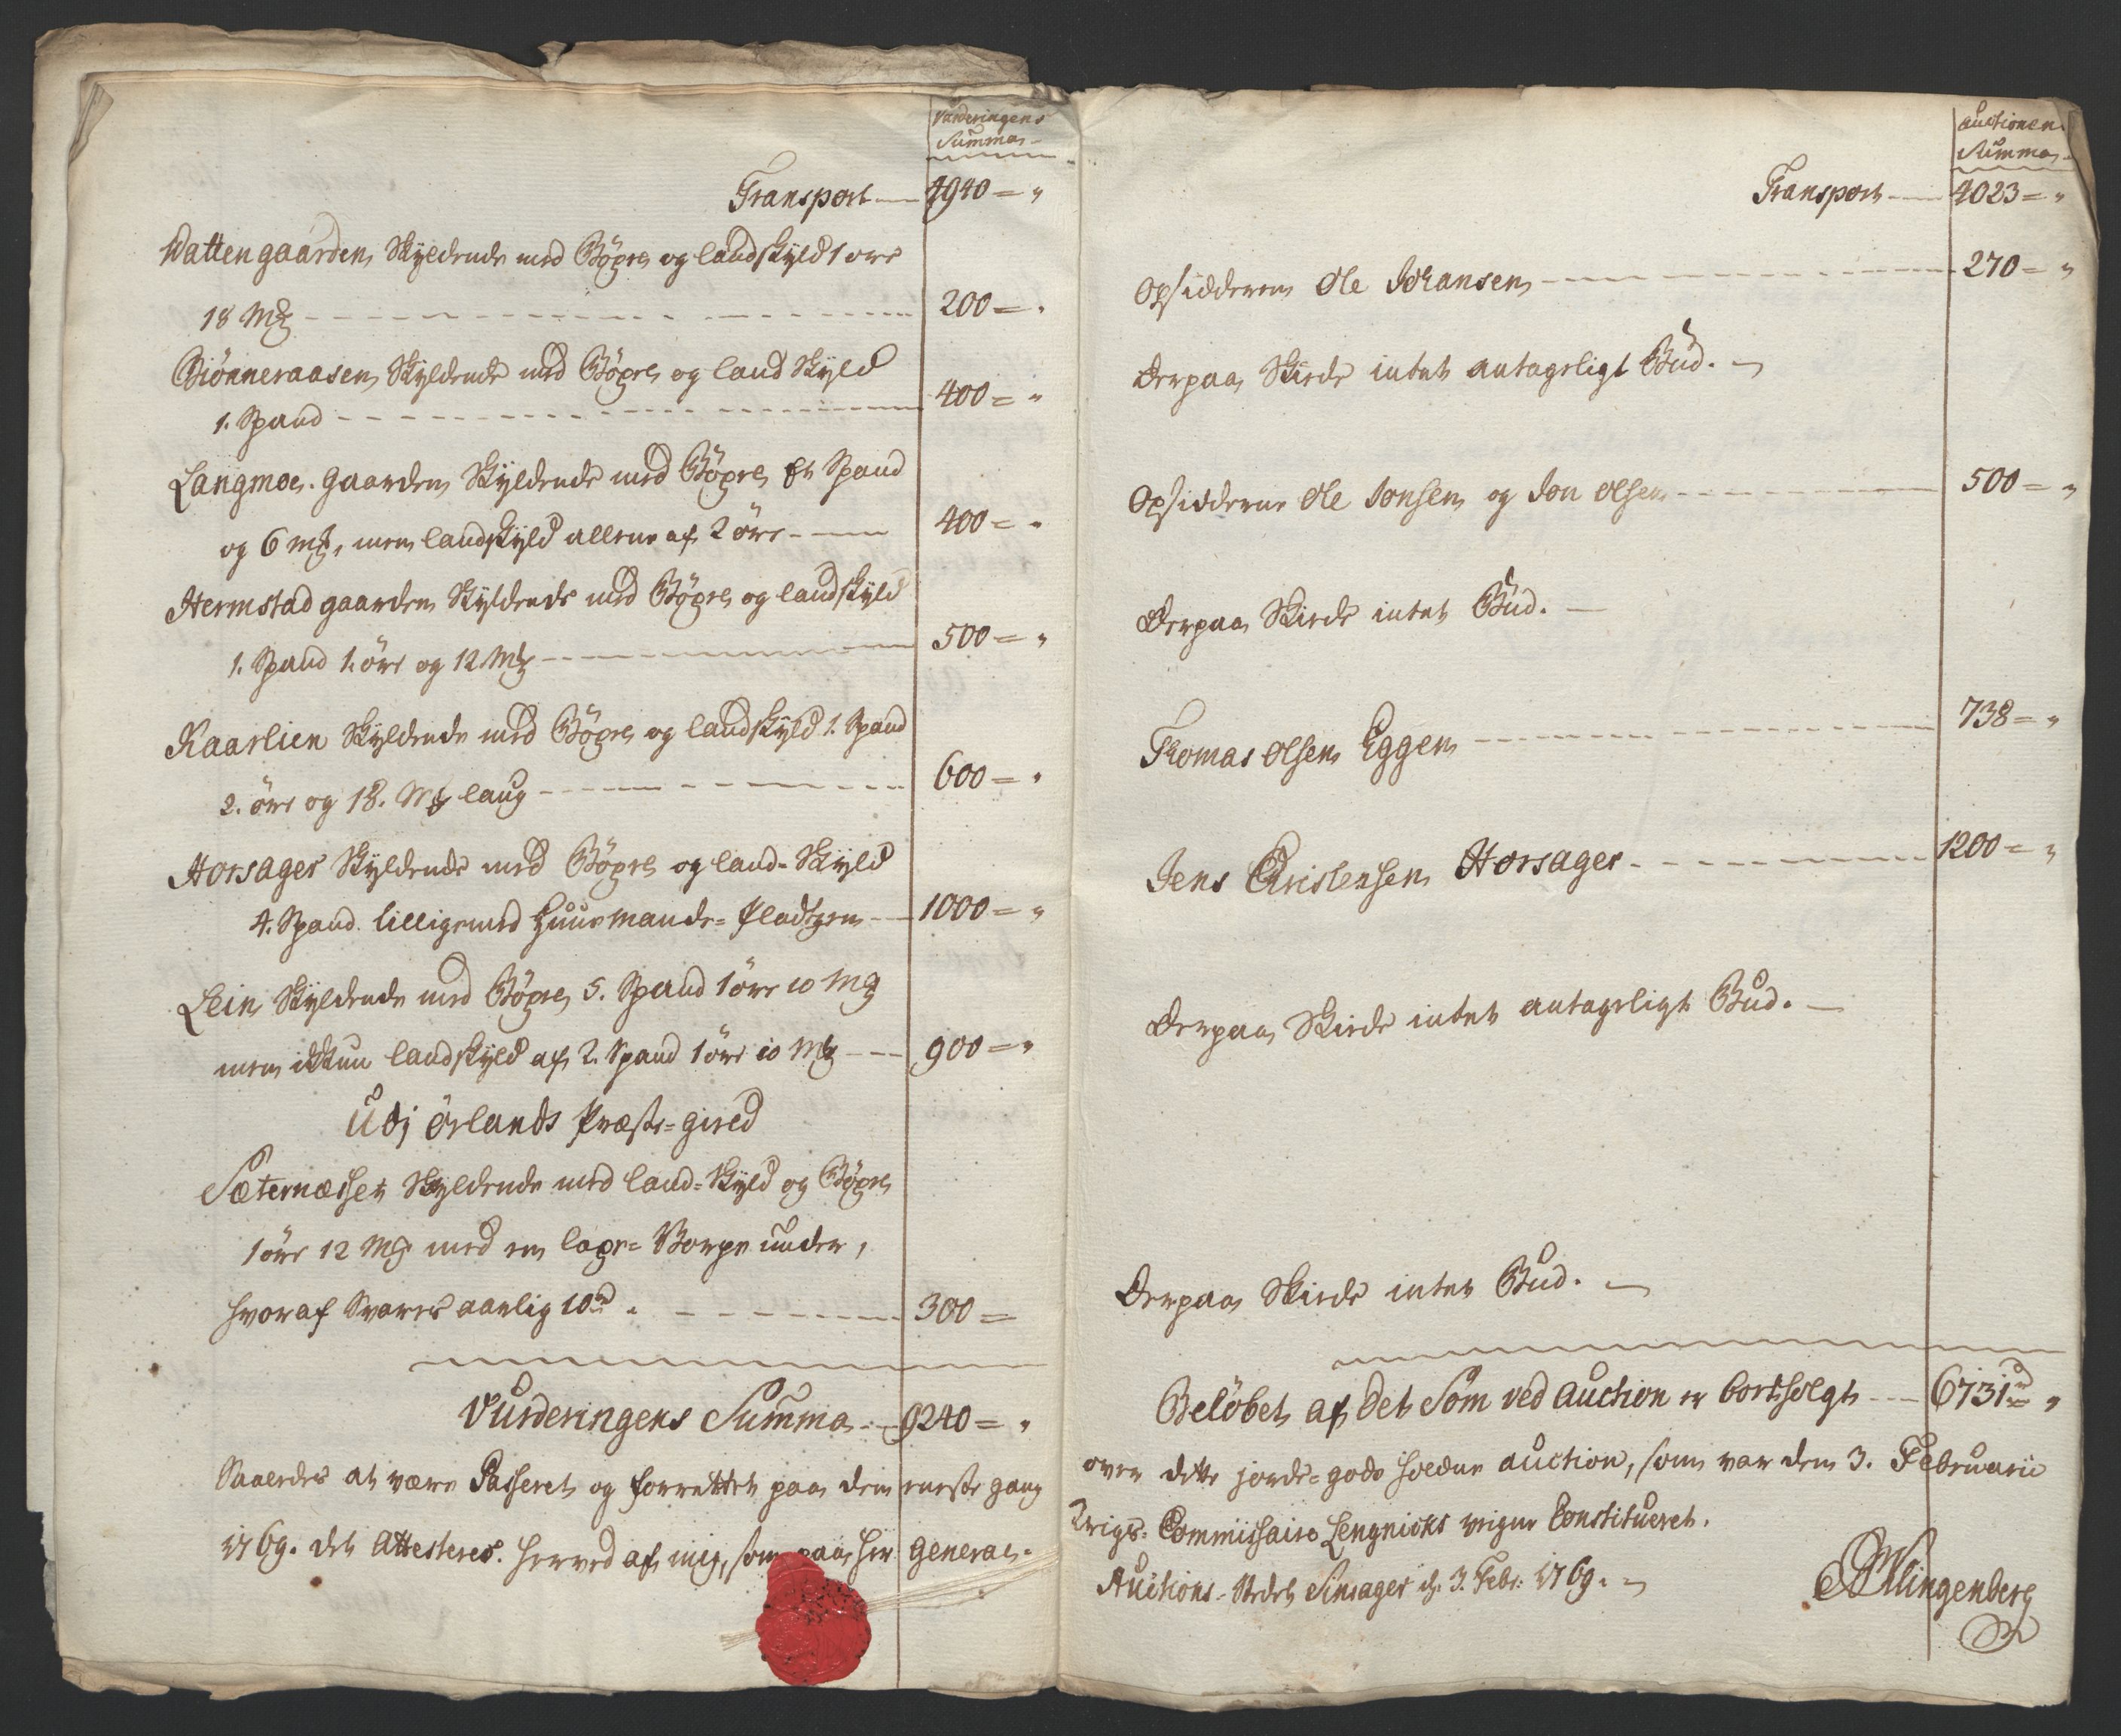 Vurderingens
Summa
Transport 4940 = "
Wattengaarden Skyldende med Bøgsel og landskyld 1 øre
18 Mk 200 = "
Biönneraasen Skyldende med Bögsel og land Skyld
1. Spand 400 = "
Langmoe-gaarden Skyldende med Bögsel Et Spand
og 6 mk, men landskyld allene af 2 öre 400 = "
Hermstad gaarden Skyldende med Bögsel og landskyld
1. Spand 1. öre og 12 Mk 500 = "
Kaarlien Skyldende med Bögsel og landskyld 1. Spand
2. öre og 18. Mk laug 600 = "
Horsager Skyldende med Bögsel og land-Skyld
4. Spand tilligemed Huusmands-Pladtzen 1000 = "
Lein Skyldende med Bögsel 5. Spand 1 öre 10 Mk
men ikkun landskyld af 2. Spand 1 öre 10 Mk 900 = "
Udj Örlands Præste-gield
Sæternæsset Skyldende med land-Skyld og Bögsel
1 öre 12 Mk med en laxe-Vorpe under,
hvoraf Svares aarlig 10 d. 300 =
Vurderingens Summa 9240 = "
Saaledes at være Passeret og forrettet paa den
1769. det Attesteres herved af mig, som paa Hr General-
Auctionens
Summa
Transport 4023 = "
Opsidderen Ole Johansen 270 = "
Derpaa Skiede intet antageligt Bud.
Opsidderne Ole Jonsen og Jon Olsen 500 = "
Derpaa Skiede intet Bud.
Thomas Olsen Eggen 738 = "
Jens Christensen Horsager 1200 = "
Derpaa Skiede intet antageligt Bud.
Derpaa Skiede intet Bud.
Belöbet af det Som ved Auction er bortsolgt 6731 d "
eneste gang over dette jorde-gods holdne Auction, som var den 3. Februarii
Krigs-Commissaire Lengnicks vegne Constitueret.
Auctions-Stedet Sinsager d. 3. Febr: 1769.
Klingenberg